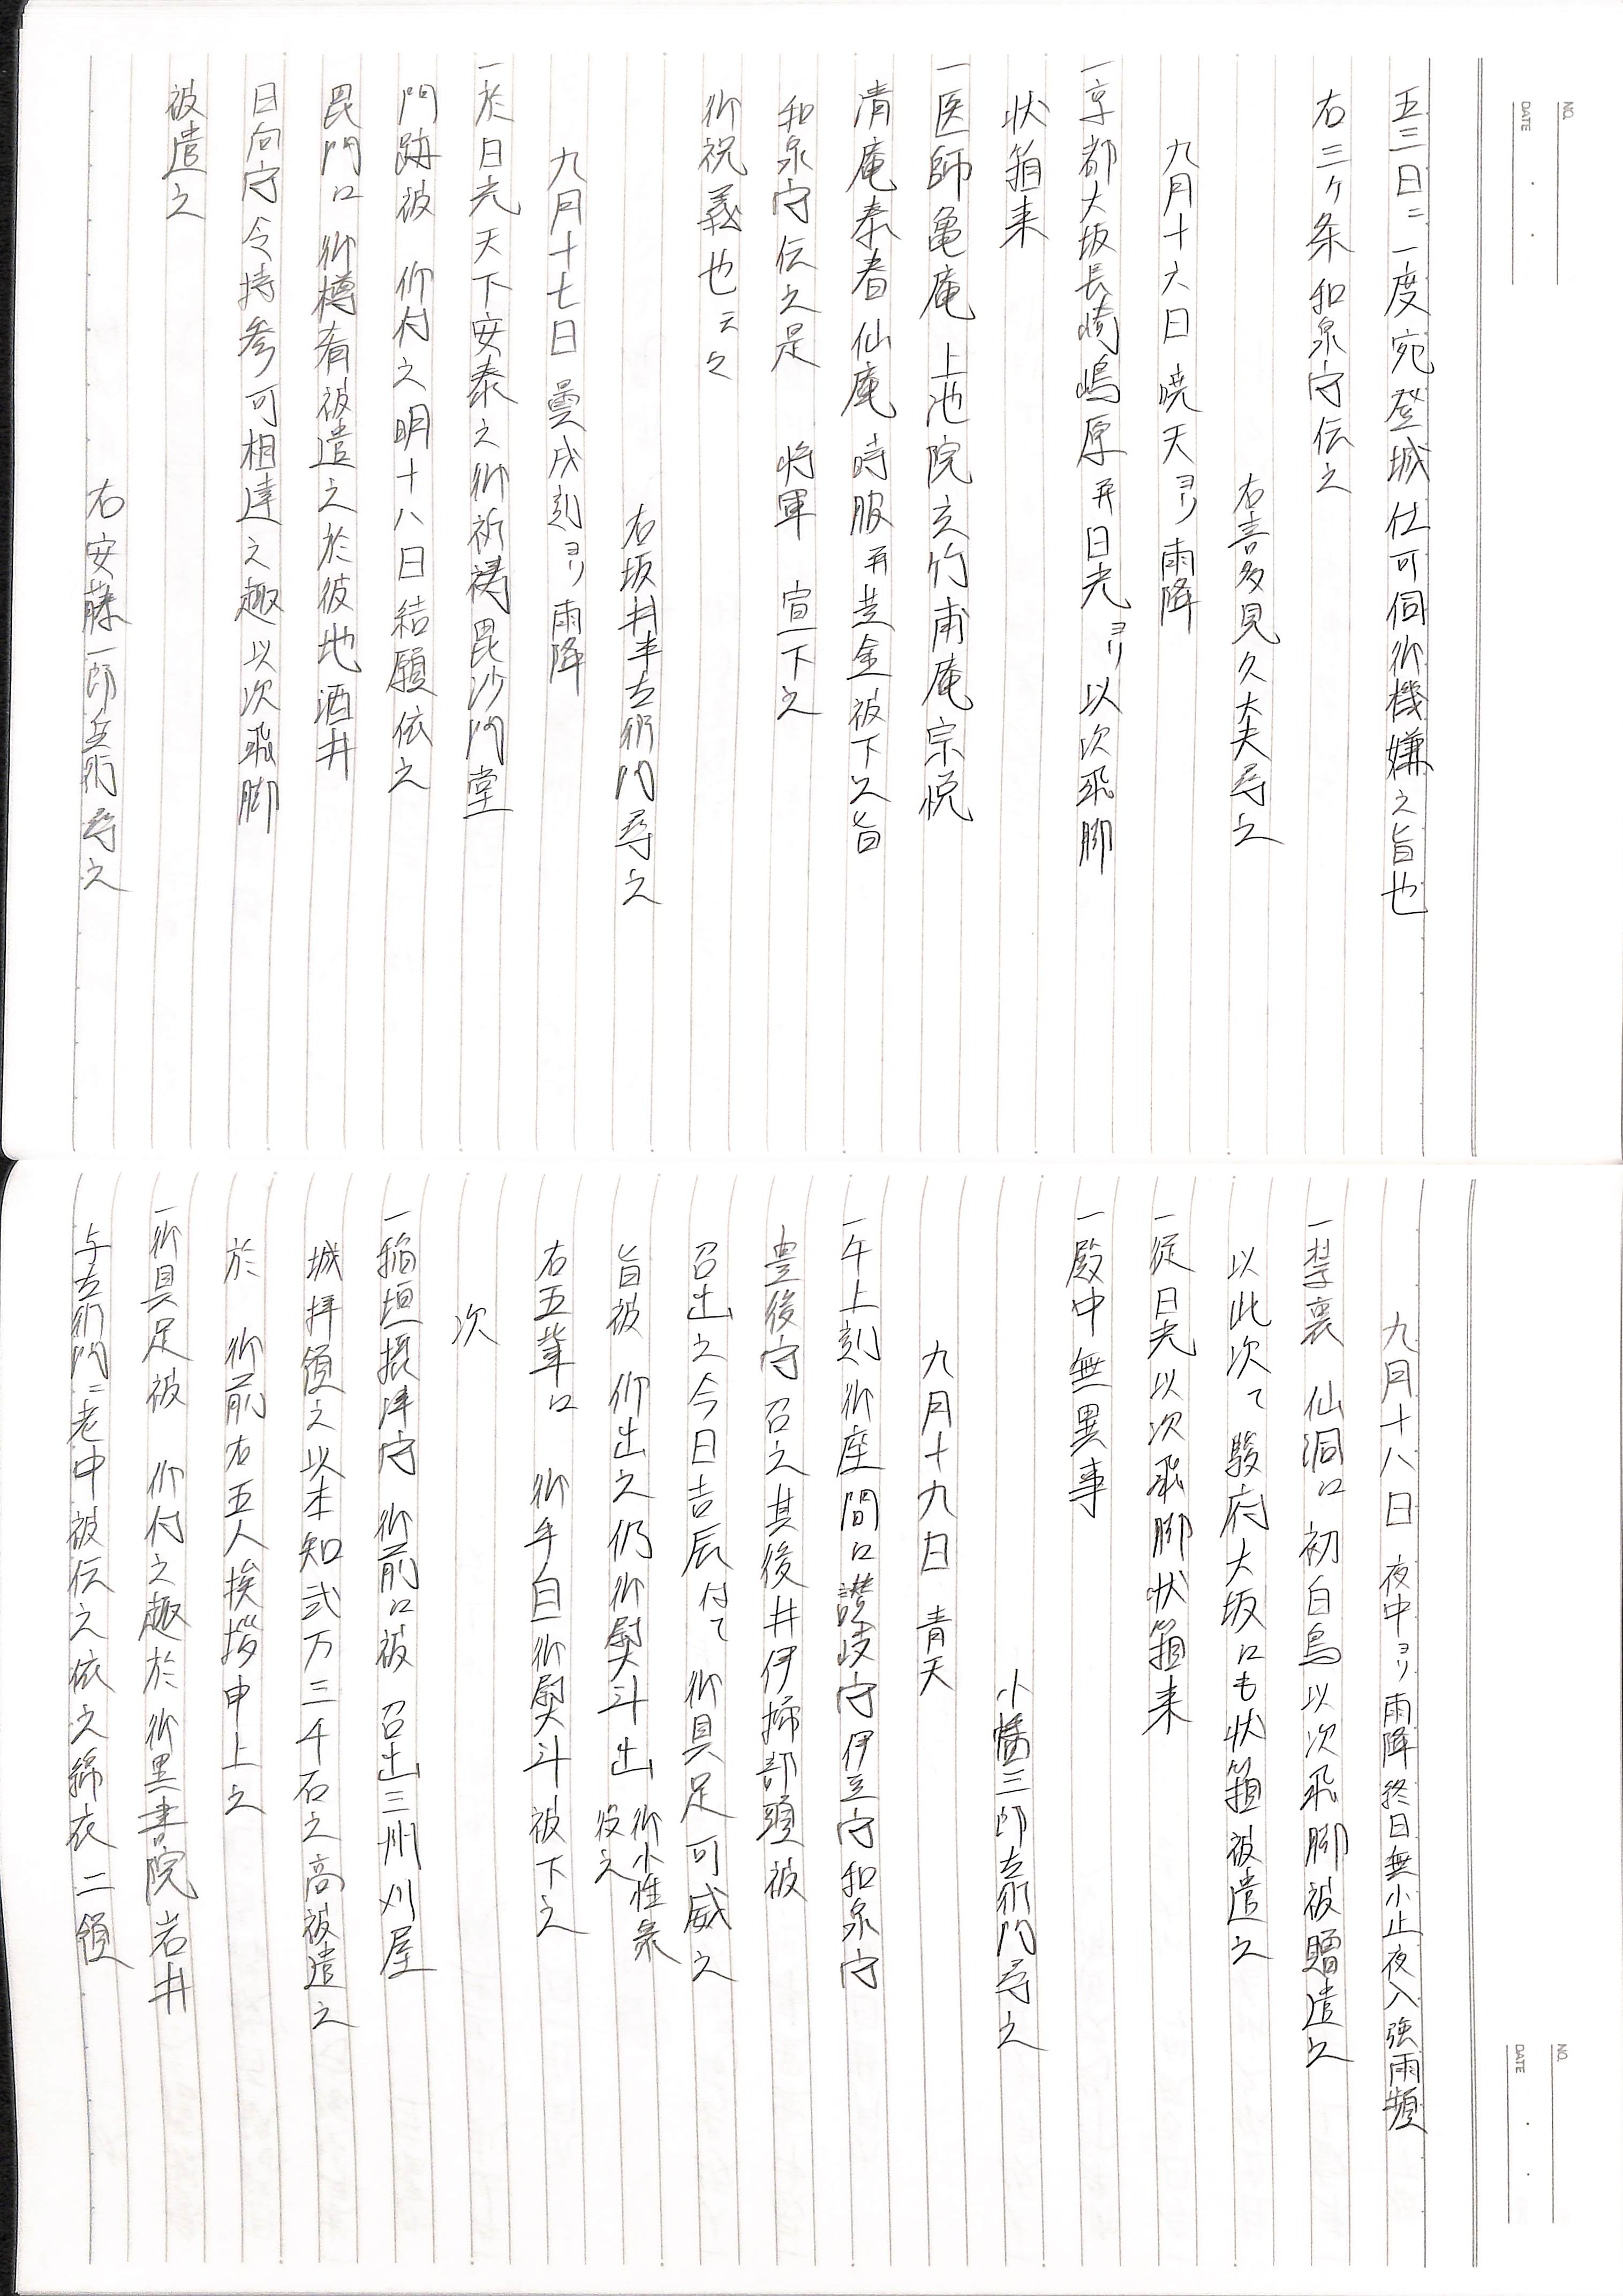 五三日ニ一度宛登城仕可伺御機嫌之旨也
右三ヶ条和泉守伝之
右喜多見久大夫尋之
九月十六日 暁天ヨリ雨降
一京都大坂長崎嶋原并日光ヨリ以次飛脚
状箱来
一医師亀庵上池院玄竹甫庵宗悦
清庵泰春仙庵時服并芝金被下之旨
和泉守伝之是 将軍 宣下之
御祝義也云々
右坂井半左衛門尋之
九月十七日 曇戌刻ヨリ雨降
一於日光天下安泰之御祈祷毘沙門堂
門跡被 仰付之明十八日結願依之
毘門江御樽肴被遣之於彼地酒井
日向守令持参可相達之趣以次飛脚
被遣之
右安藤一郎兵衛尋之
九月十八日 夜中ヨリ雨降終日無小止夜入強雨頻
一禁裏 仙洞江初白鳥以次飛脚被贈遣之
以此次て駿府大坂江も状箱被遣之
一従日光以次飛脚状箱来
一殿中無異事
小幡三郎左衛門尋之
九月十九日 青天
一午上刻御座間江讃岐守伊豆守和泉守
豊後守召之其後井伊掃部頭被
召出之今日吉辰付て 御具足可威之
旨被 仰出之仍御熨斗出 御小性衆役之
右五輩江 御手自御熨斗被下之
次
一稲垣摂津守 御前江被 召出三州刈屋
城拝領之以本知弐万三千石之高被遣之
於 御前右五人挨拶申上之
一御具足被 仰付之趣於御黒書院岩井
与左衛門ニ老中被伝之依之綿衣二領